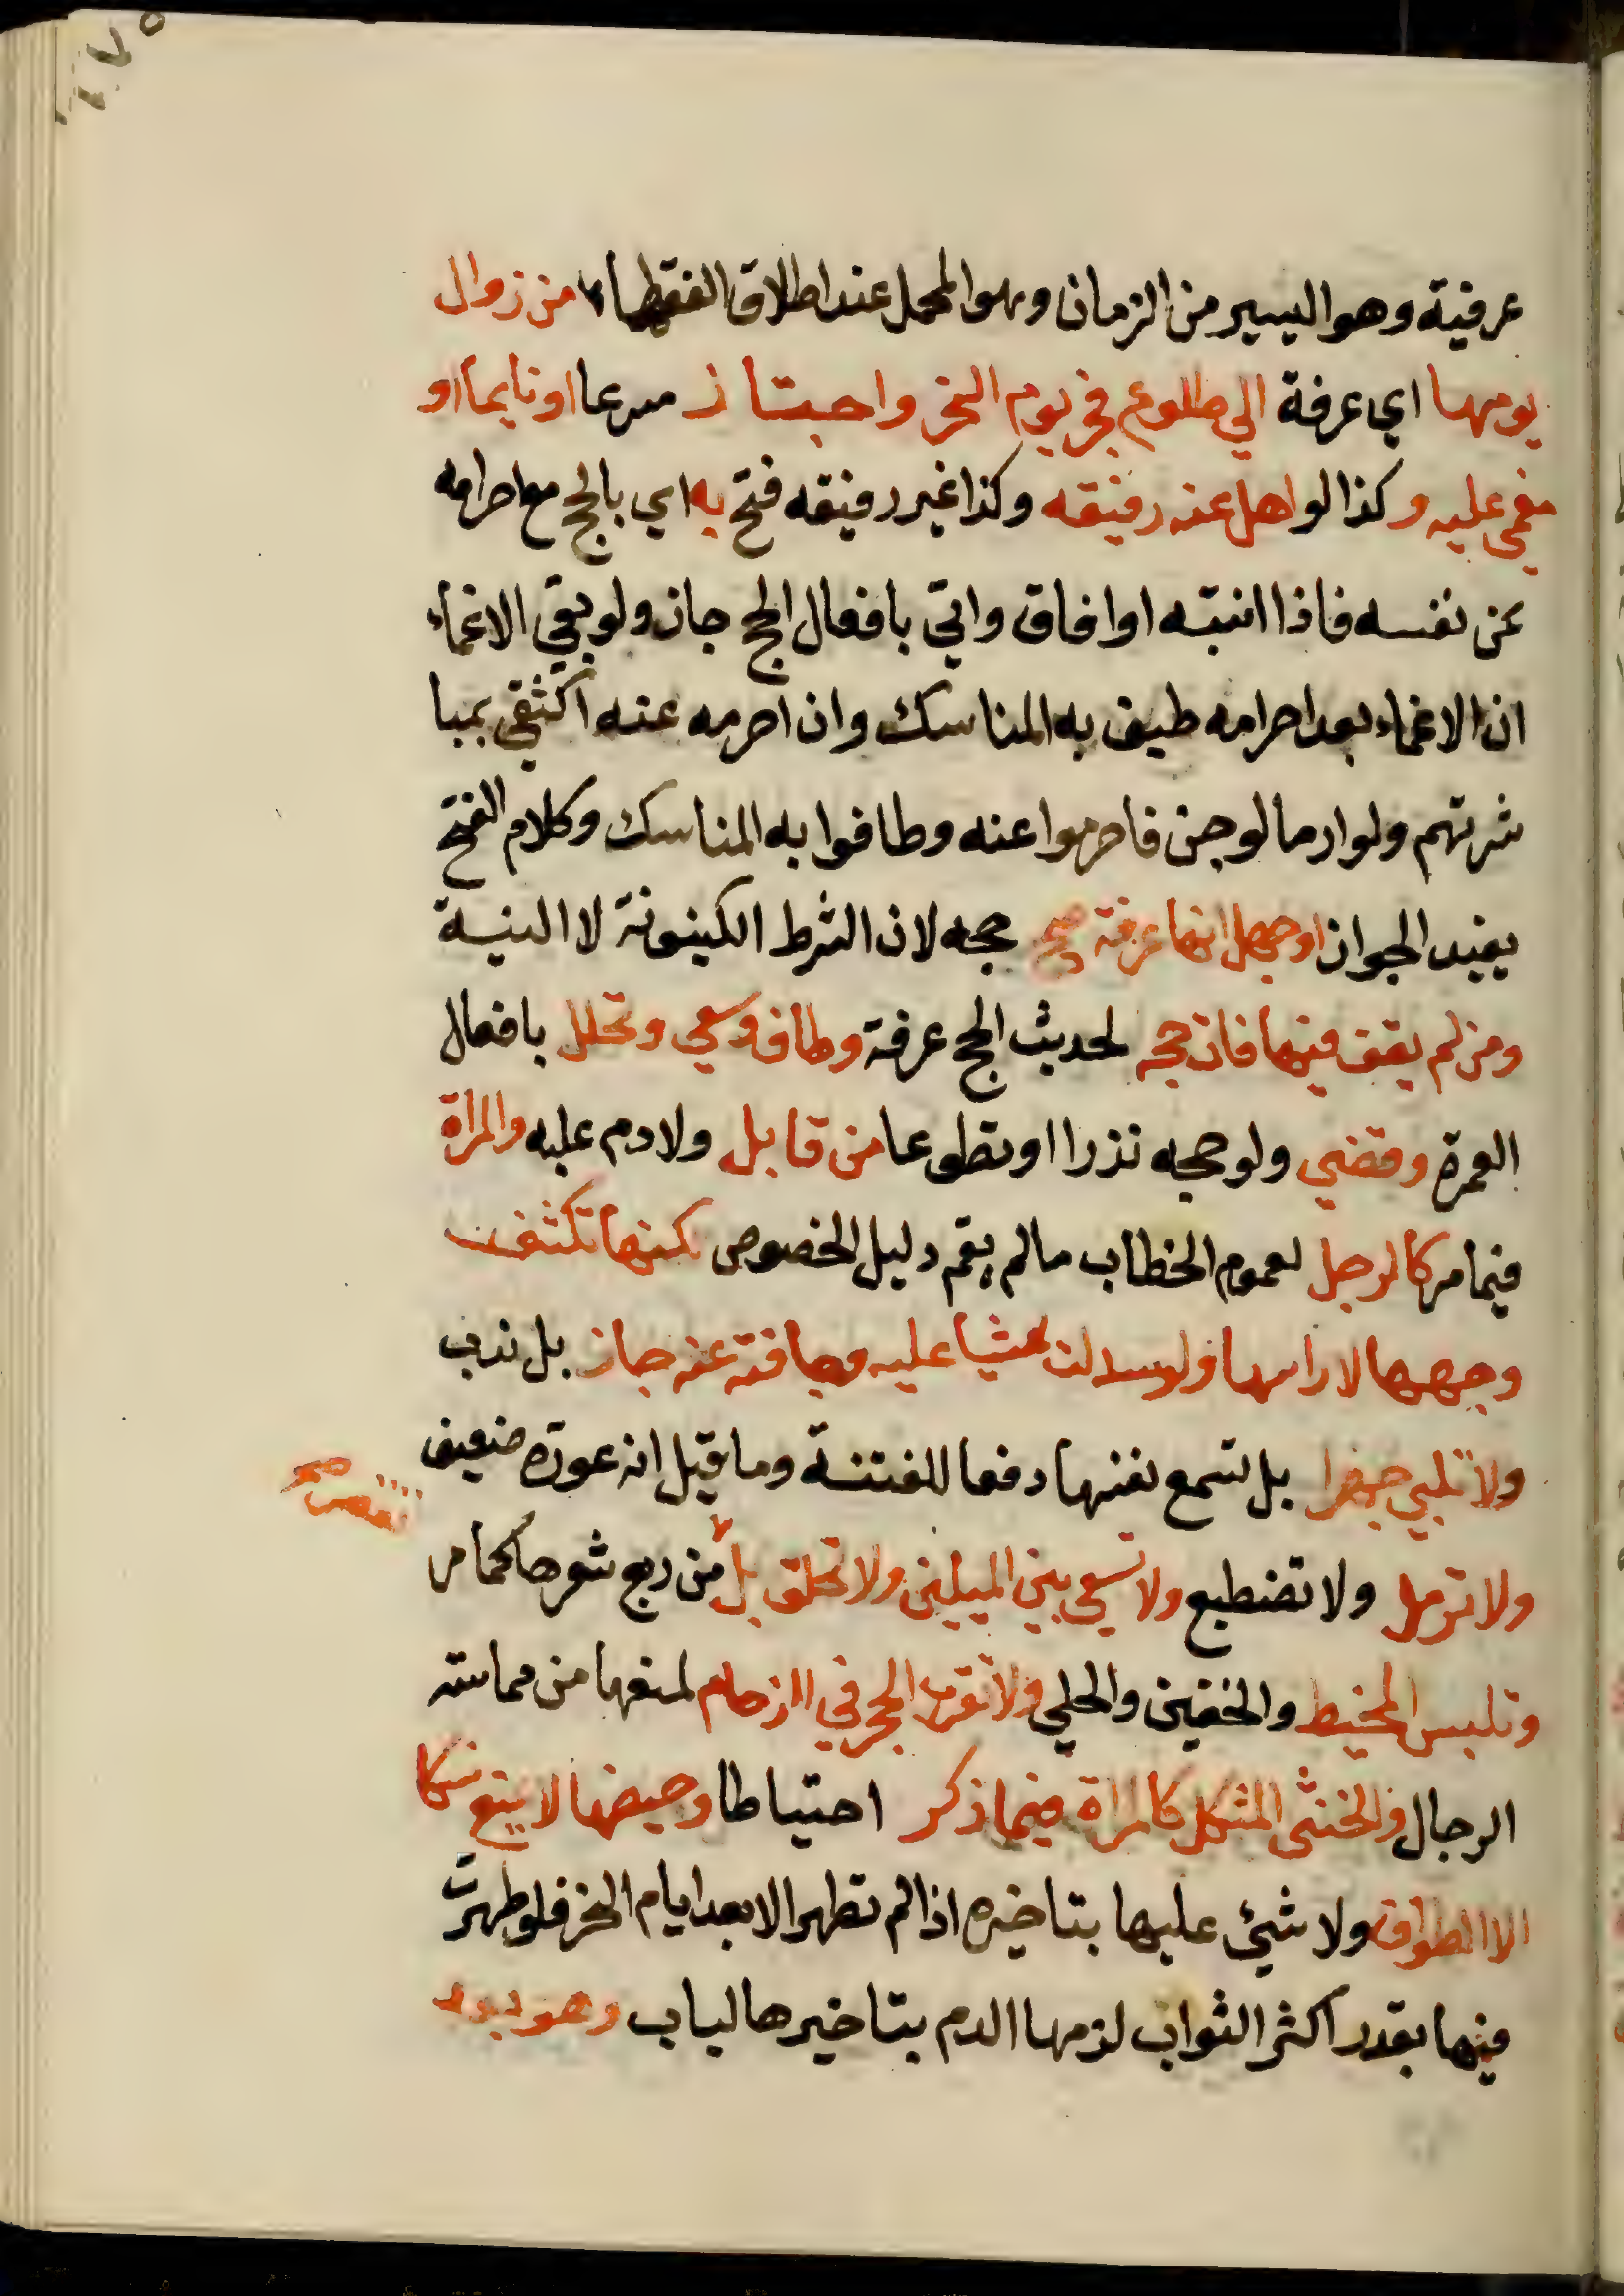 ١٧٥
عرفية وهو اليسير من الزمان وهو المحمل عند اطلاق الفقهاء من زوال
يومها اي عرفة الي طلوع فجر يوم النحر واجتاز مسرعا او نايما او
مغمي عليه وكذا لو اهل عنه رفيقه وكذا غير رفيقه فتح به اي بالحج مع احرامه
عن نفسه فاذا انتبه او افاق واتي بافعال الحج جاز ولو بقي الاغماء
ان الاغماء بعد احرامه طيف به المناسك وان احرمه عنه اكتفي بمبا
شرتهم ولو ار ما لو جن فاحرموا عنه وطافوا به المناسك وكلام الفتح
يفيد الجواز او جهل انها عرفة صح حجه لان الشرط الكينونة لا النية
ومن لم يقف فيها فات حجه لحديث الحج عرفة وطاف وسعي وتحلل بافعال
العمرة وقضي ولو حجه نذرا او تطوعا من قابل ولا دم عليه والمراة
فيما مر كالرجل لعموم الخطاب ما لم يقم دليل الخصوص لكنها تكشف
وجهها لا راسها ولو سدلت شيا عليه وجافته عنه جاز بل ندب
ولا تلبي جهرا بل تسمع نفسها دفعا للفتنة وما قيل انه عورة ضعيف
ولا ترمل ولا تضطبع ولا تسعي بين الميلين ولا تحلق بل من ربع شعرها كما مر
تقصر صح
وتلبس المخيط والخفين والحلي ولا تقرب الحجر في الزحام لمنعها من مماسة
الرجال والخنثي المشكل كالمراة فيما ذكر احتياطا وحيضها لا يمنع نسكا
الا الطواف ولا شيء عليها بتاخيره اذا لم تطهر الا بعد ايام النحر فلو طهرت
فيها بقدر اكثر الثواب لزمها الدم بتاخيرها لباب وهو بعد